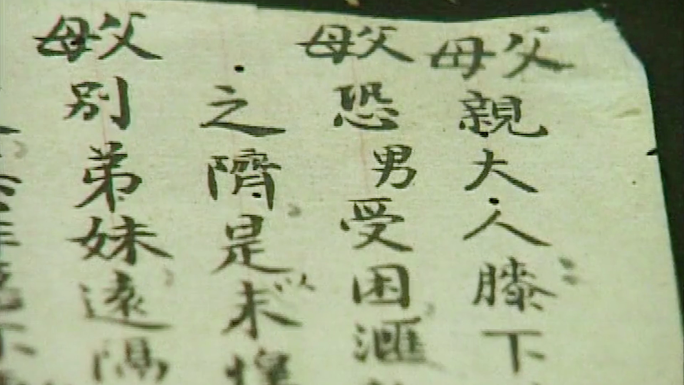 父母親大人膝下
父母恐男受困滙
之隮是以未
父母別弟妹遠隔